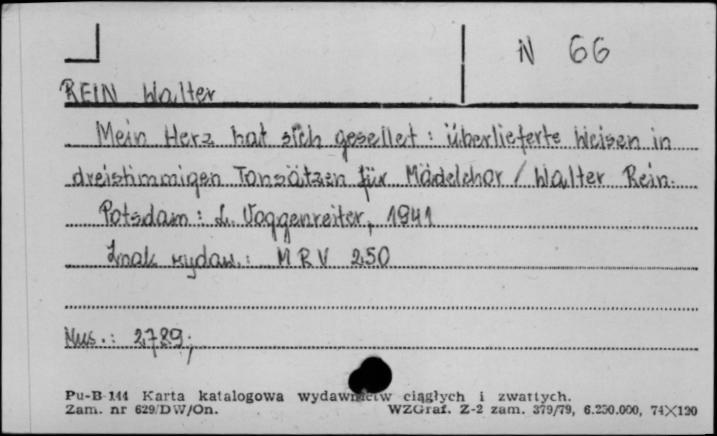 N 66
REIN Walter
Mein Herz hat sich gesellet : überlieferte Weisen in
dreistimmigen Tonsätzen für Mädelchor / Walter Rein.
Potsdam : L. Voggenreiter, 1941
Znak wydaw.: M R V 250
Mus.: 2789;
Pu-B-144 Karta katalogowa wydawnictw ciągłych i zwartych.
Zam. nr 629/DW/On. WZGraf. Z-2 zam. 379/79, 6.250.000, 74×120